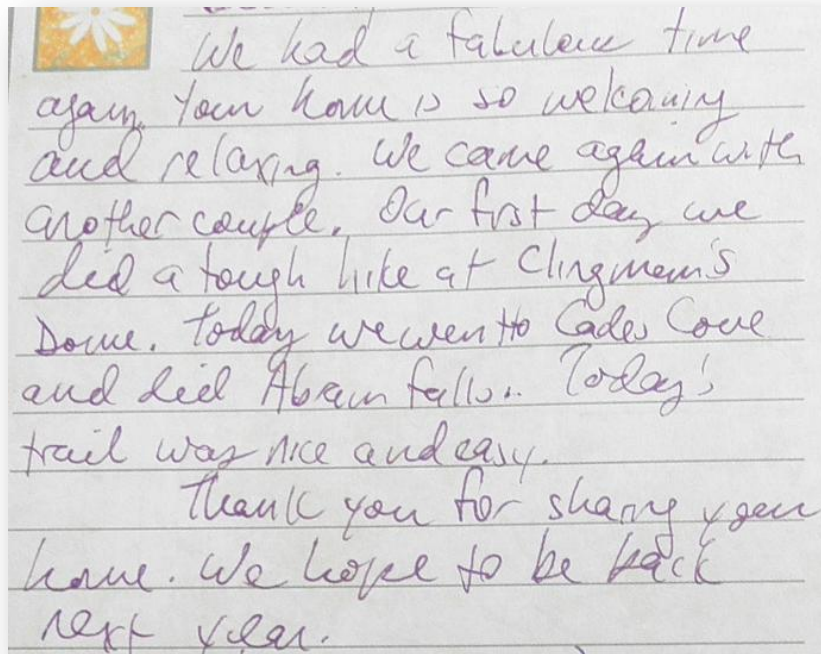 We had a fabulous time
again. Your home is so welcoming
and relaxing. We came again with
another couple. Our first day we
did a tough hike at Clingmem's
Dome. Today we went to Cades Cove
and did Abram falls.. Today's
trail was nice and easy.
Thank you for sharing your
home. We hope to be back
next year.